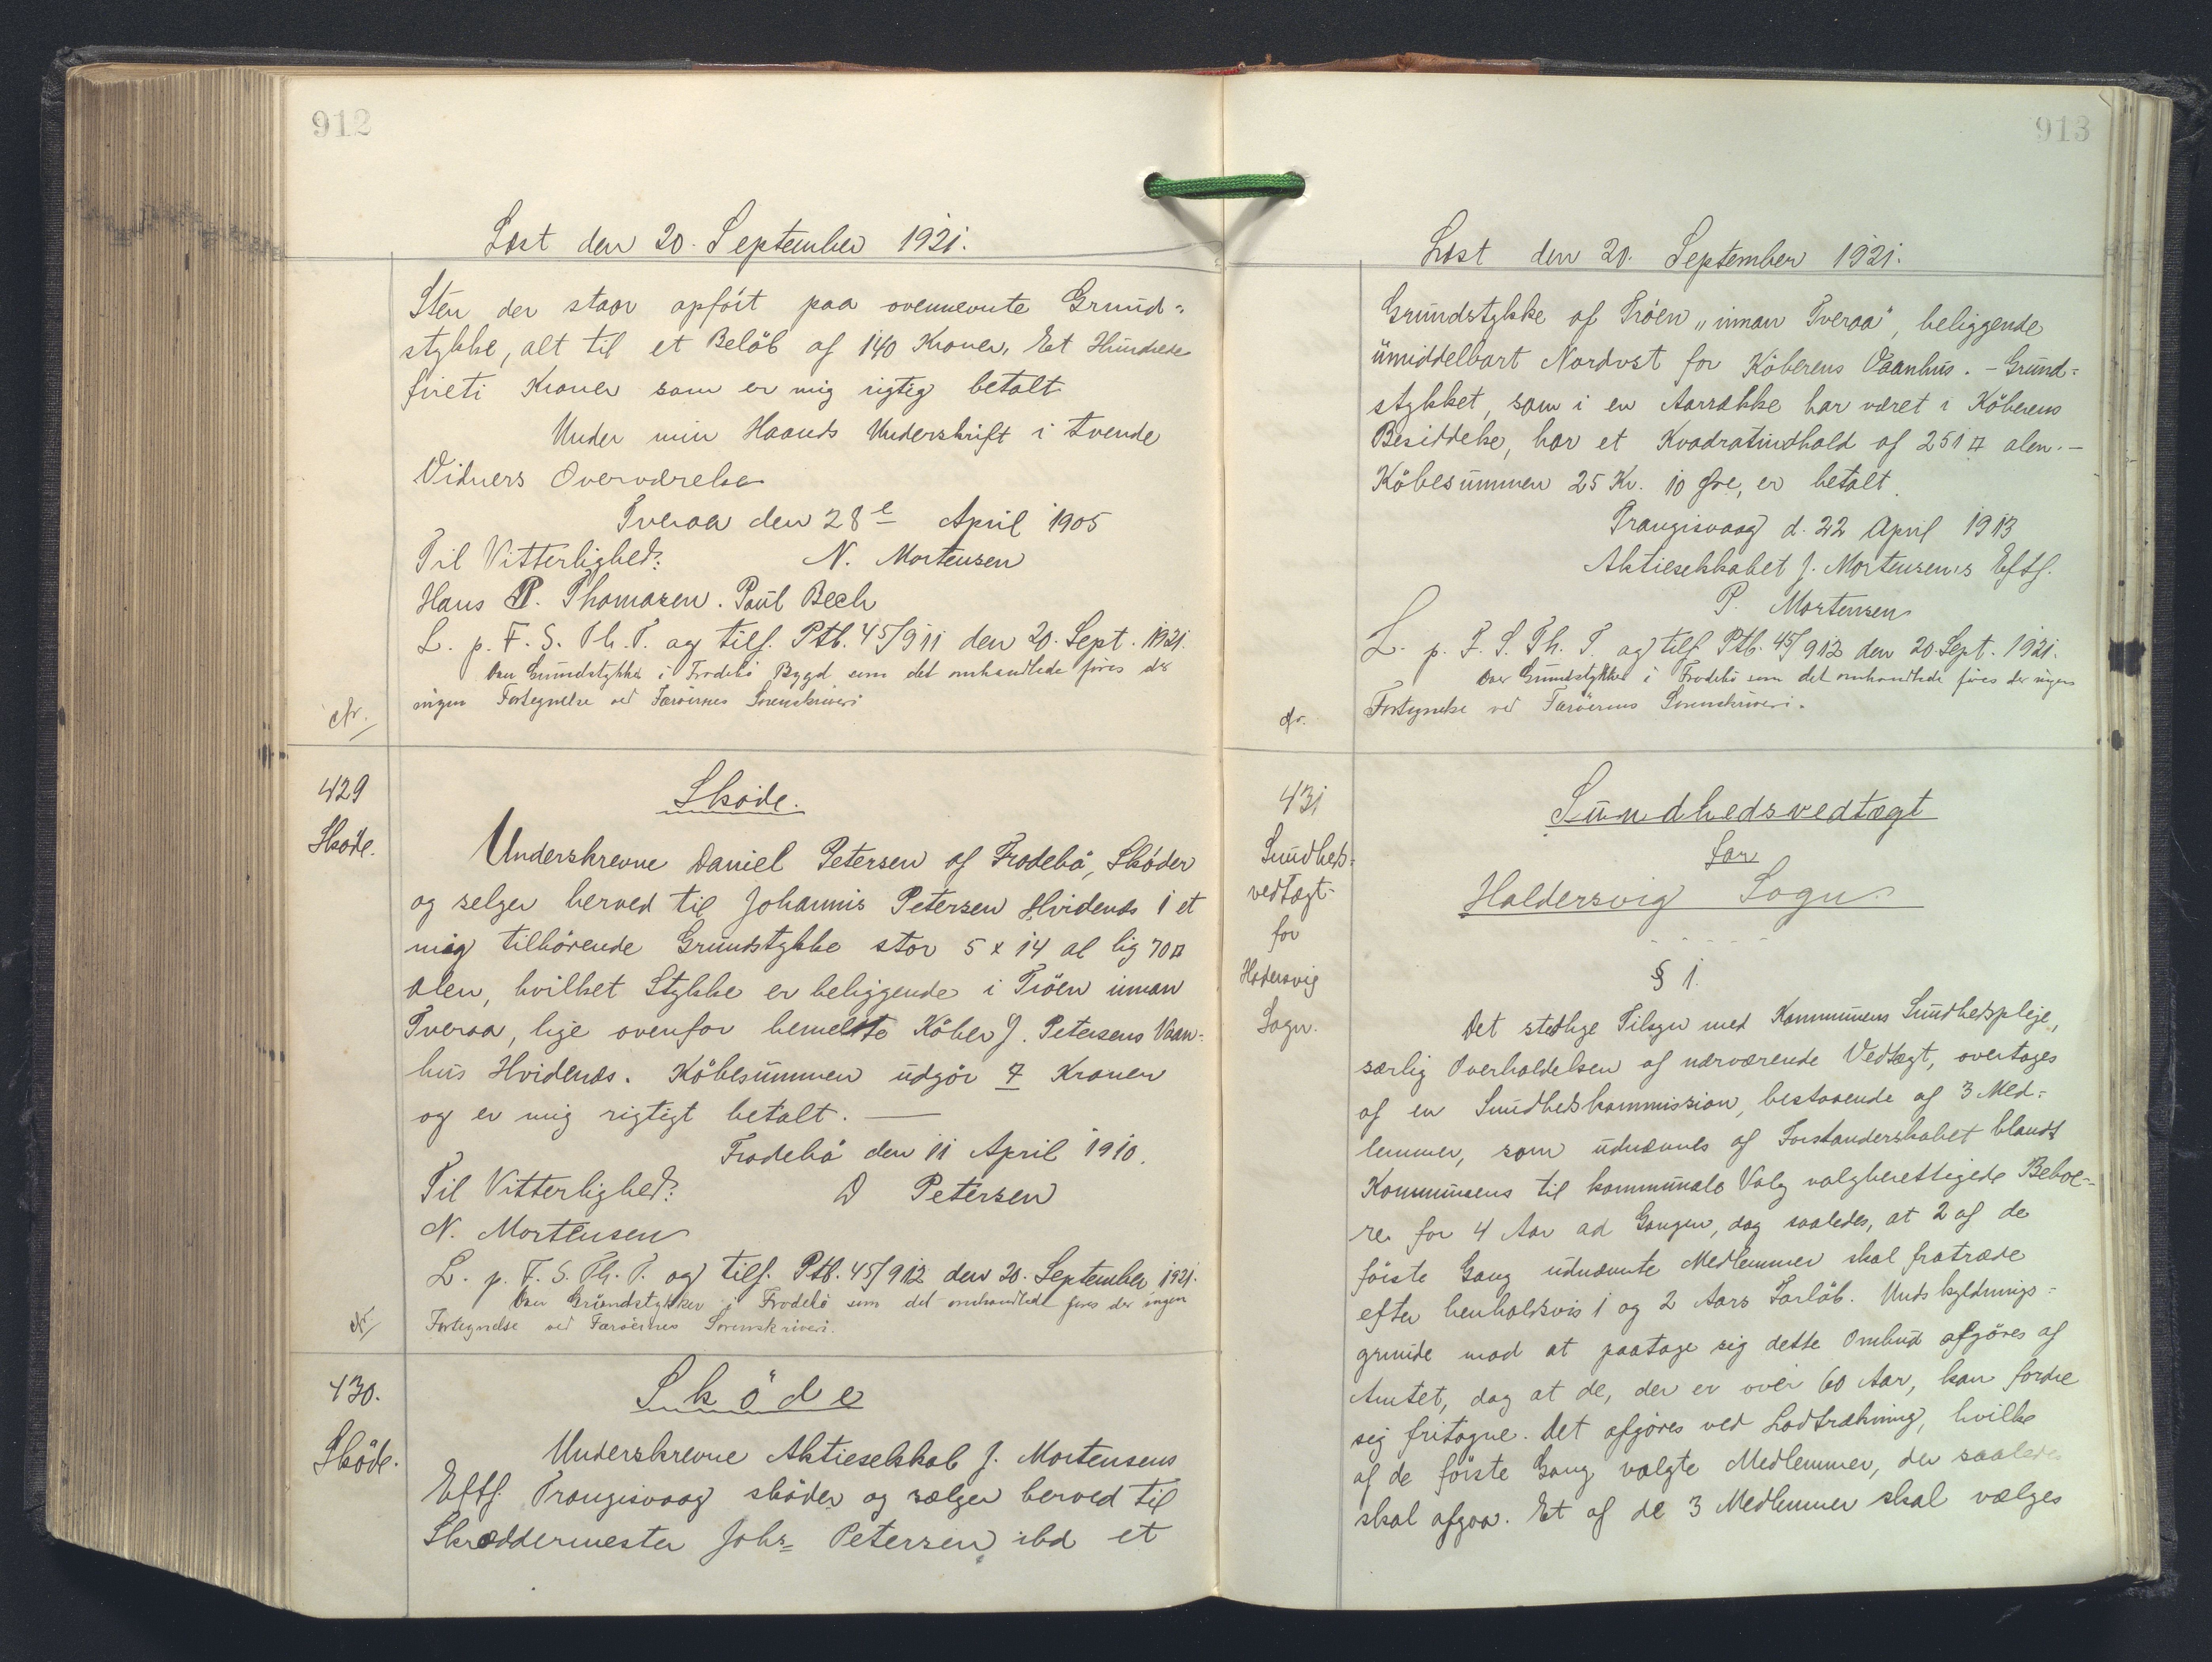 912
Læst den 20. September 1921.
Sten der staar opført paa ovennevnte Grund-
stykke, alt til et Beløb af 140 Kroner, Et Hundrede
fireti Kroner som er mig rigtig betalt
Under min Haands Underskrift i tvende
Vidners Overværelse
Tveraa den 28e April 1905
Til Vitterlighed: N. Mortensen
Hans P. Thomasen. Paul Bech
L. p. F. S. Th. T. og tilf. Ptb. 45/911 den 20. Sept. 1921.
Over Grundstykker i Frodebö Bygd som det omhandlede føres der
ingen Fortegnelse ved Færöernes Sorenskriveri
cfr.
429
Sköde.
Sköde.
Underskrevne Daniel Petersen af Frodebö, Sköder
og selger herved til Johannis Petersen Hvidenæs 1 et
mig tilhörende Grundstykke stor 5 x 14 al lig 70 □
Alen, hvilket Stykke er beliggende i Tröen innan
Tveraa, lige ovenfor bemeldte Köber J. Petersens Vaan-
hus Hvidenæs. Köbesummen udgör 7 Kroner
og er mig rigtigt betalt. —
Frodebö den 11 April 1910.
Til Vitterlighed: D Petersen
N. Mortensen
L. p. F. S. Th. T. og tilf. Ptb. 45/912 den 20. September 1921.
Over Grundstykker i Frodebö som det omhandlede føres der ingen
Fortegnelse ved Færöernes Sorenskriveri.
cfr.
430.
Sköde.
Sköde
Underskrevne Aktieselskab J. Mortensens
Eftf. Trangisvaag sköder og sælger herved til
Skræddermester Johs= Petersen ibd et
913
Læst den 20. September 1921.
Grundstykke af Tröen „innan Tveraa", beliggende
umiddelbart Nordvst for Köberens Vaanhus. - Grund-
stykket, som i en Aarrække har været i Köberens
Besiddelse, har et Kvadratindhold af 251 □ alen. —
Köbesummen 25 Kr. 10 Øre, er betalt.
Trangisvaag d. 22 April 1913
Aktieselskabet J. Mortensen's Eftf.
P. Mortensen
L. p. F. S. Th. T. og tilf Ptb. 45/912 den 20. Sept. 1921.
Over Grundstykker i Frodebö som det omhandlede føres der ingen
Fortegnelse ved Færöernes Sorenskriveri.
cfr.
431
Sundheds-
vedtægt
for
Haldersvig
Sogn.
Sundhedsvedtægt
for
Haldersvig Sogn.
§ 1.
Det stedlige Tilsyn med Kommunens Sundhedspleje,
særlig Overholdelsen af nærværende Vedtægt, overtages
af en Sundhedskommission, bestaaende af 3 Med-
lemmer, som udnævnes af Forstanderskabet blandt
Kommunens til kommunale Valg valgberettigede Beboe-
re for 4 Aar ad Gangen, dog saaledes, at 2 af de
förste Gang udnævnte Medlemmer skal fratræde
efter henholdsvis 1 og 2 Aars Forløb. Undskyldnings-
grunde mod at paatage sig dette Ombud afgöres af
Amtet, dog at de, der er over 60 Aar, kan fordre
sig fritagne. Det afgöres ved Lodtrækning, hvilke
af de förste Gang valgte Medlemmer, der saaledes
skal afgaa. Et af de 3 Medlemmer skal vælges